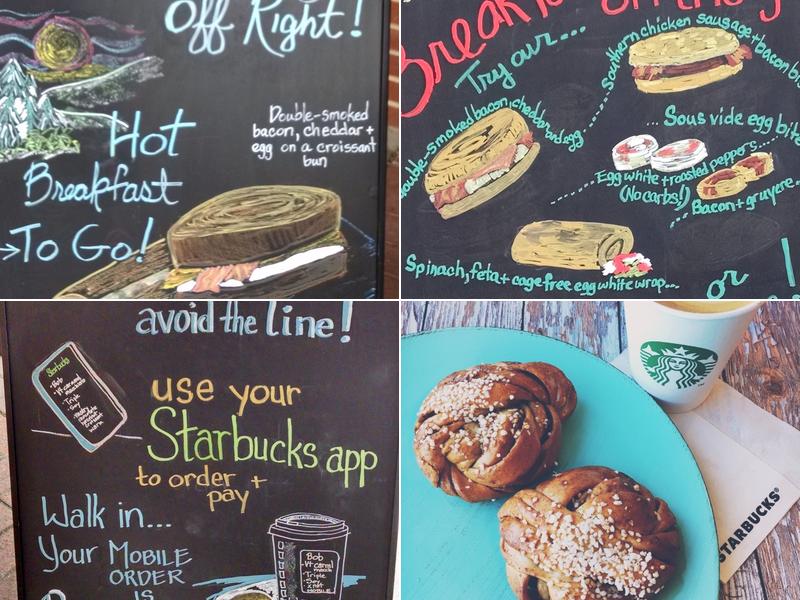 off Right!
Double-smoked
bacon, cheddar +
egg on a croissant
bun
Hot
Breakfast
→To Go!
Try our...
Southern chicken sausage + bacon
Double-smoked bacon, cheddar and egg
... Sous vide egg bite
Egg white + roasted peppers...
(No carbs!)
Bacon + gruyere...
Spinach, feta + cage-free egg white wrap...
or
avoid the line!
Starbucks
•Bob
•Vt caramel
•Triple
•Soy
use your
Starbucks app
to order +
pay
Walk in...
Your MOBILE
ORDER
IS
Bob
•Vt caramel
•Triple
•Soy
MOBILE
STARBUCKS®